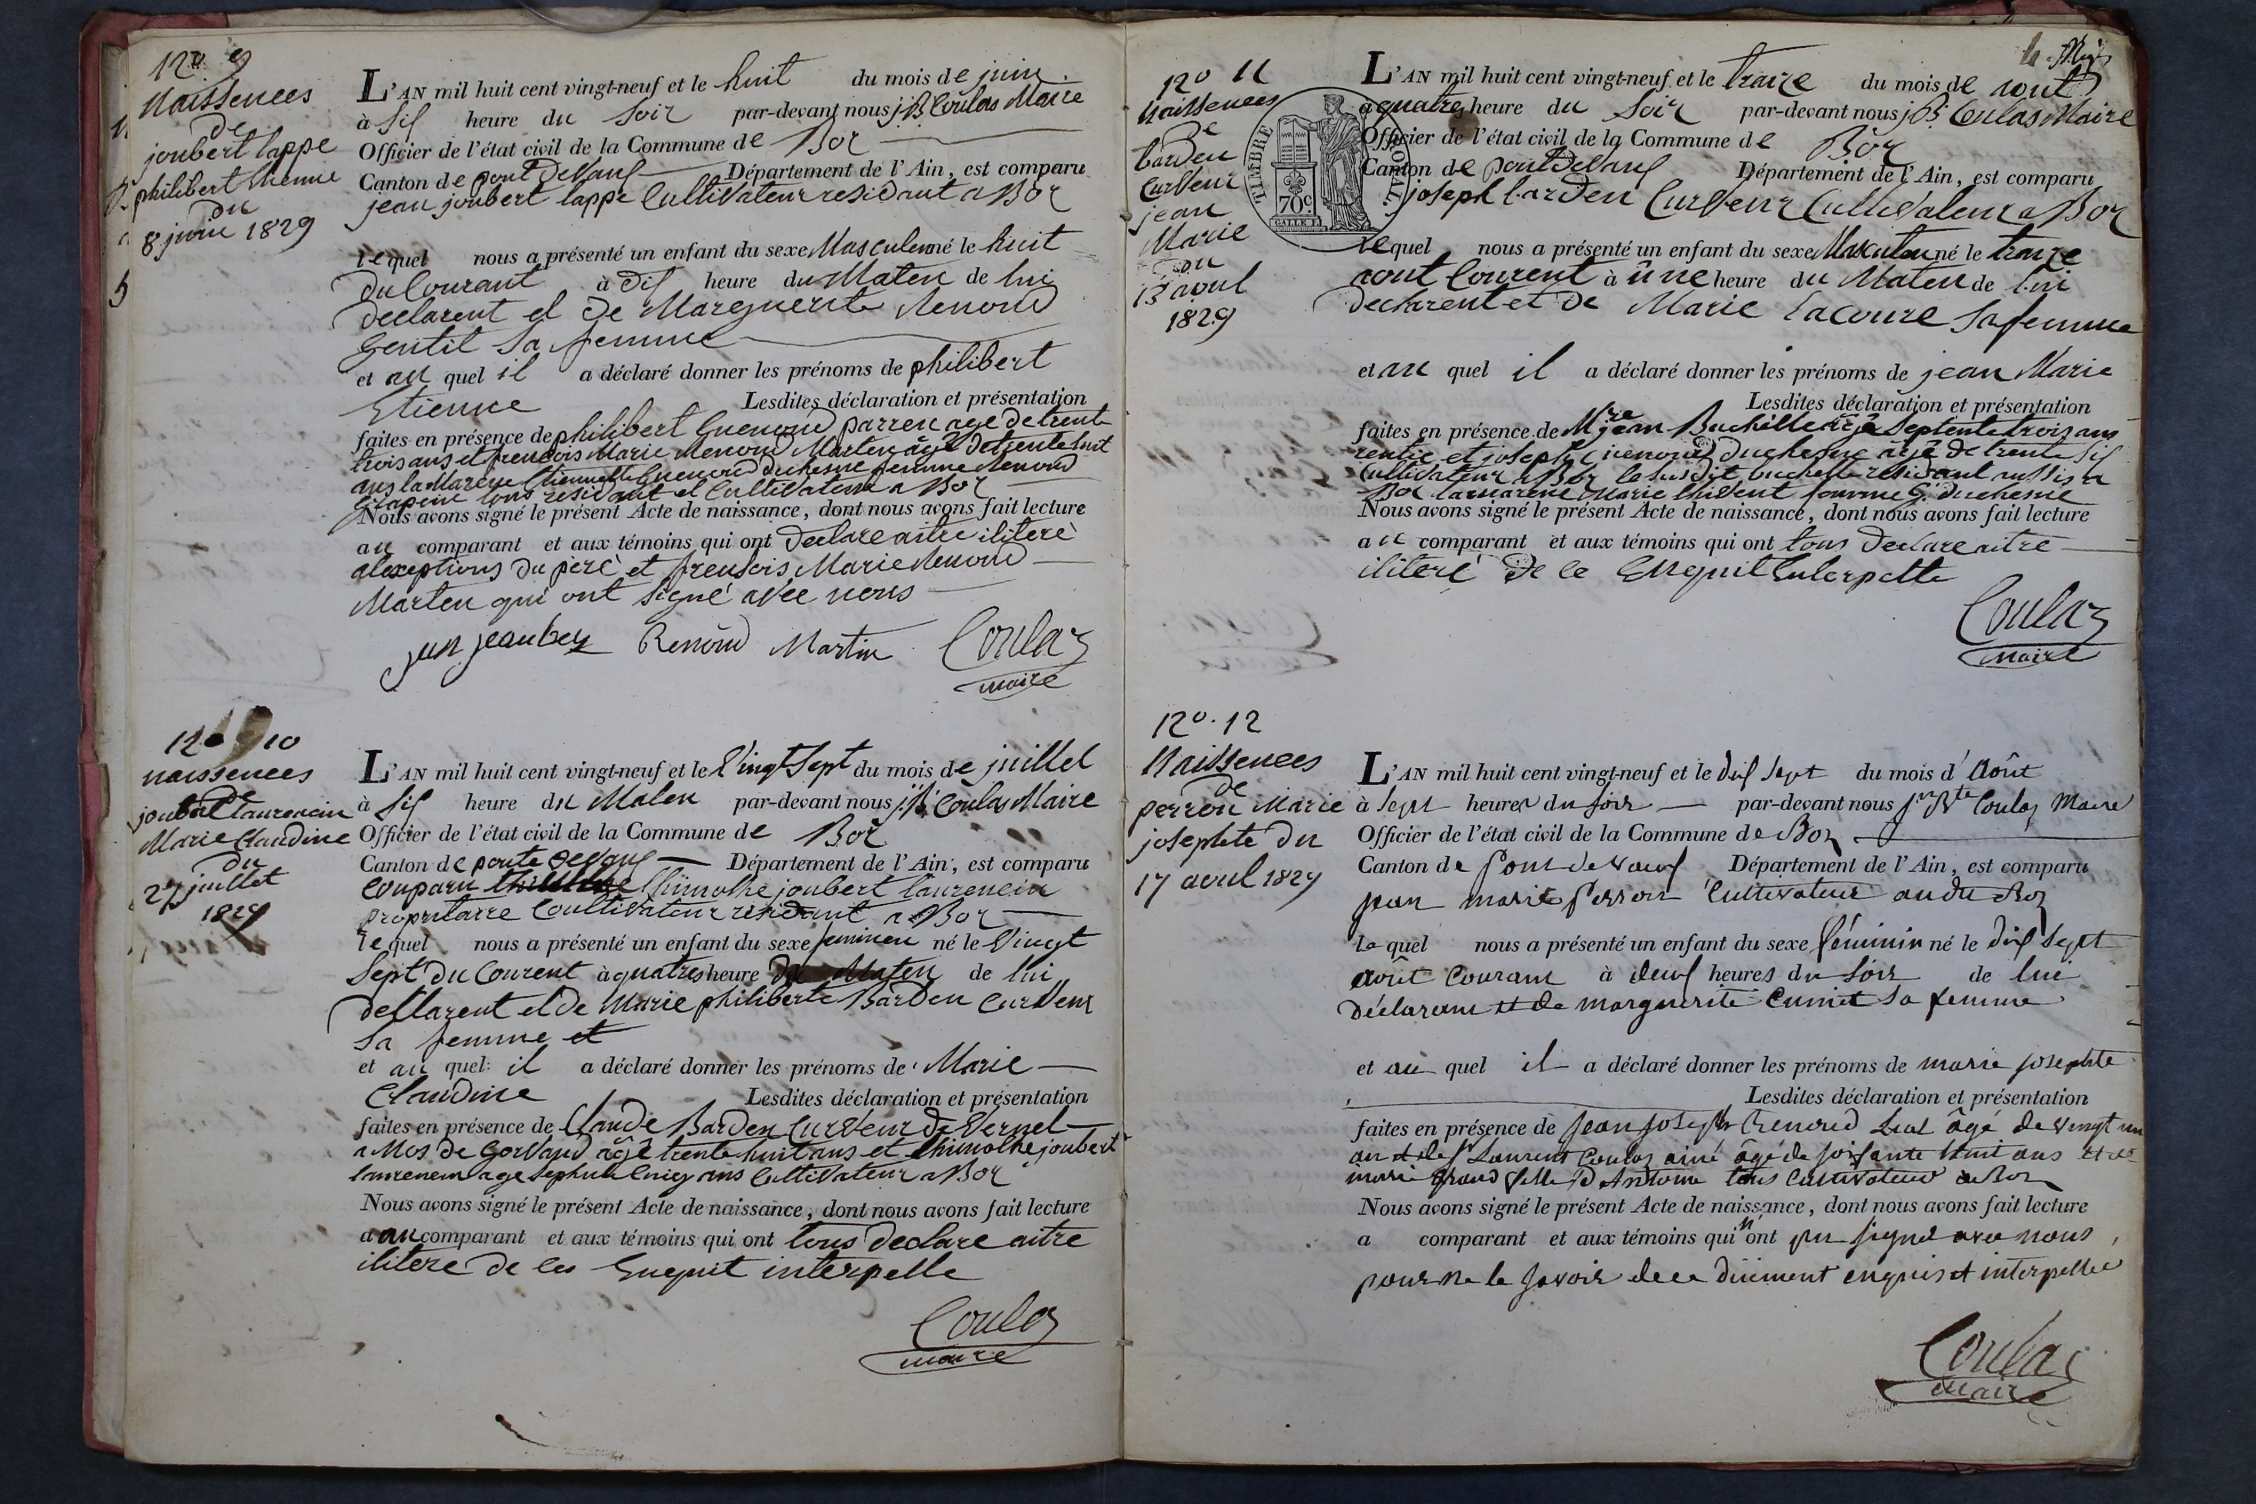 12º 9
Naissences
de
joubert lappe
philibert Etienne
du
8 juin 1829
L'AN mil huit cent vingt-neuf et le huit du mois de juin
à Sis heure du Soir par-devant nous j.B. Coulas Maire
Officier de l'état civil de la Commune de Boz
Canton de pont Devaus Département de l'Ain, est comparu
jean joubert lappe Cultivateur residant a Boz
le quel nous a présenté un enfant du sexe Masculen né le huit
Du Courant à Dis heure du Maten de lui
declarent et de Marguerite Renoud
Gentil Sa femme
et au quel il a déclaré donner les prénoms de philibert
Etienne Lesdites déclaration et présentation
faites en présence de philibert Guenoud parren age de trente
trois ans et frencois Marie Renoud Marten agé de trente huit
ans la Marene Etiennette Guenoud duchesne femme Renoud
tous residant et Cultivateur a Boz
Nous avons signé le présent Acte de naissance, dont nous avons fait lecture
au comparant et aux témoins qui ont Declare aitre iliteré
alexeptions du peré et frensois Marie Renoud
Marten qui ont Signé avec nous
Renoud Martin Coulas
maire
12º 10
naissences
de
joubert laurencin
Marie Claudine
du
27 juillet
1829
L'AN mil huit cent vingt-neuf et le Vingt Sept du mois de juillet
à Sis heure du Maten par-devant nous j.B. Coulas Maire
Officier de l'état civil de la Commune de Boz
Canton de ponte Devaus Département de l'Ain, est comparu
Conparu Thimothe joubert laurencin
proprietaire Coultivateur residant a Boz
le quel nous a présenté un enfant du sexe feminen né le Vingt
Sept du Courent à quatres heure du Maten de lui
dellarent et de Marie philiberte Barden Curveur
Sa femme et
et au quel il a déclaré donner les prénoms de Marie
Claudine Lesdites déclaration et présentation
faites en présence de Claude Barden Curveur de Vernel
a Mos de Gorvand âgé trente huit ans et Thimothe joubert
laurencin age Cultivateur a Boz
Nous avons signé le présent Acte de naissance, dont nous avons fait lecture
a au comparant et aux témoins qui ont tous declare aitre
ilitere de ces Enquit interpelle
Coulas
maire
12º 11
Naissences
De
barden
Curveur
jean
Marie
du
13 aout
1829
TIMBRE ROYAL
70c
L'AN mil huit cent vingt-neuf et le traize du mois de aout
a quatres heure du Soir par-devant nous j.B. Coulas Maire
Officier de l'état civil de la Commune de Boz
Canton de pont Devaus Département de l'Ain, est comparu
joseph barden Curveur Cultivateur a Boz
le quel nous a présenté un enfant du sexe Masculen né le traize
aout Courent à une heure du Maten de lui
declarent et de Marie lacoure Sa femme
et au quel il a déclaré donner les prénoms de jean Marie
Lesdites déclaration et présentation
faites en présence de Mre jean Buchille agé Septente trois ans
rentié et joseph Guenoud Duchesne agé de trente Sis
Cultivateur a Boz le susdit buchille residant aussis a
Boz la marene Marie femme G. duchesne
Nous avons signé le présent Acte de naissance, dont nous avons fait lecture
au comparant et aux témoins qui ont tous declare aitre
iliteré de ce Enquit Enterpelle
Coulas
maire
12º. 12
Naissences
de
perron Marie
josephte du
17 aout 1829
L'AN mil huit cent vingt-neuf et le dix sept du mois d'Août
à sept heures du soir par-devant nous Jn Bte Coulas Maire
Officier de l'état civil de la Commune de Boz
Canton de Pont de vaux Département de l'Ain, est comparu
jean marie Perron Cultivateur au du Boz
le quel nous a présenté un enfant du sexe féminin né le dix sept
août Courant à deux heures du soir de lui
déclarant et de marguerite Cunit sa femme
et au quel il a déclaré donner les prénoms de marie josephte
Lesdites déclaration et présentation
faites en présence de Jean Joseph Renoud âgé de vingt un
an et de Sr Laurent Coulas ainé âgé de soixante huit ans et de
marie Antoine tous Cultivateur a Boz
Nous avons signé le présent Acte de naissance, dont nous avons fait lecture
a comparant et aux témoins qui n'ont pu signé avec nous,
pour ne le savoir de ce dûement enquis et interpellé
Coulas
maire